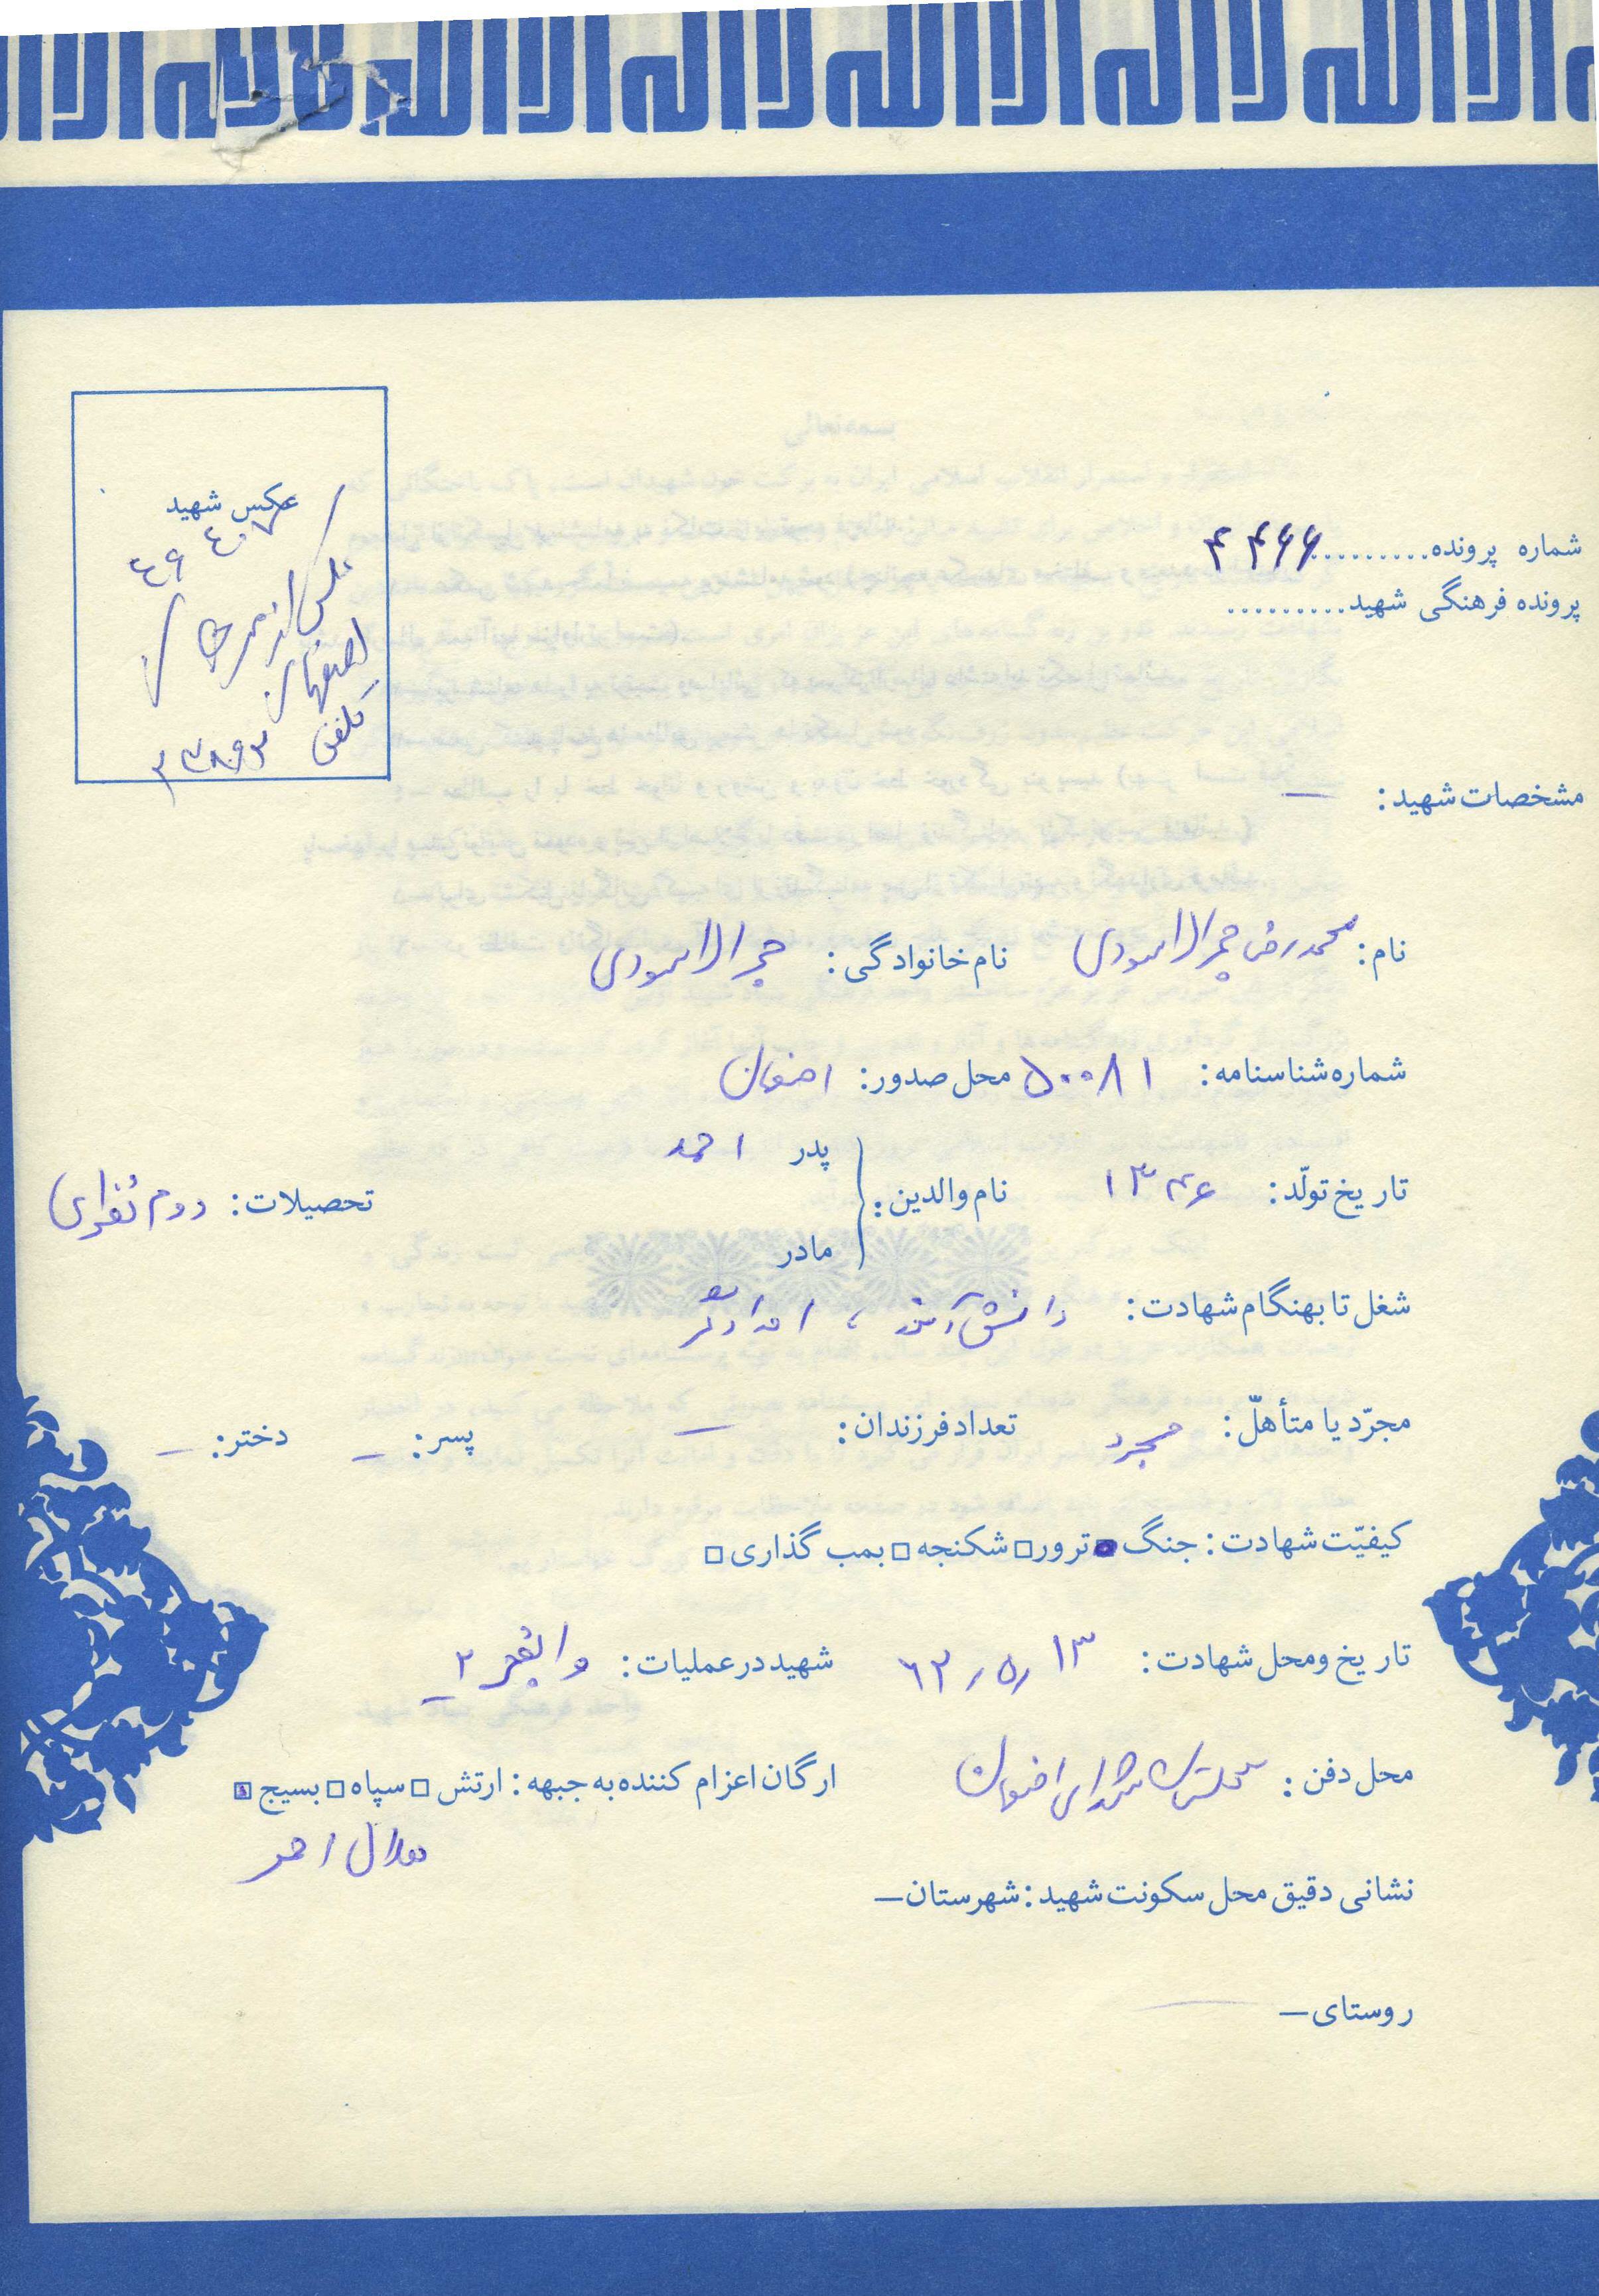 لا اله الا الله لا اله الا الله لا اله الا الله
عکس شهید
اصفهان
تلفن ۳۳۸۹۳
شماره پرونده.......... ۴۴۶۶
پرونده فرهنگی شهید..........
مشخصات شهید: —
نام: محمدرضا حجرالاسودی نام خانوادگی: حجرالاسودی
شماره شناسنامه: ۵۰۰۸۱ محل صدور: اصفهان
تاریخ تولّد: ۱۳۴۶ نام والدین: پدر احمد
مادر
تحصیلات: دوم نظری
شغل تا بهنگام شهادت: دانش‌آموز، امدادگر
مجرّد یا متأهلّ: مجرد تعداد فرزندان: — پسر: — دختر: —
کیفیّت شهادت: جنگ ■ ترور □ شکنجه □ بمب گذاری □
تاریخ ومحل شهادت: ۶۲/۵/۱۳ شهید در عملیات: والفجر ۲
محل دفن: گلستان شهدای اصفهان ارگان اعزام کننده به جبهه: ارتش □ سپاه □ بسیج □
هلال احمر
نشانی دقیق محل سکونت شهید: شهرستان—
روستای—